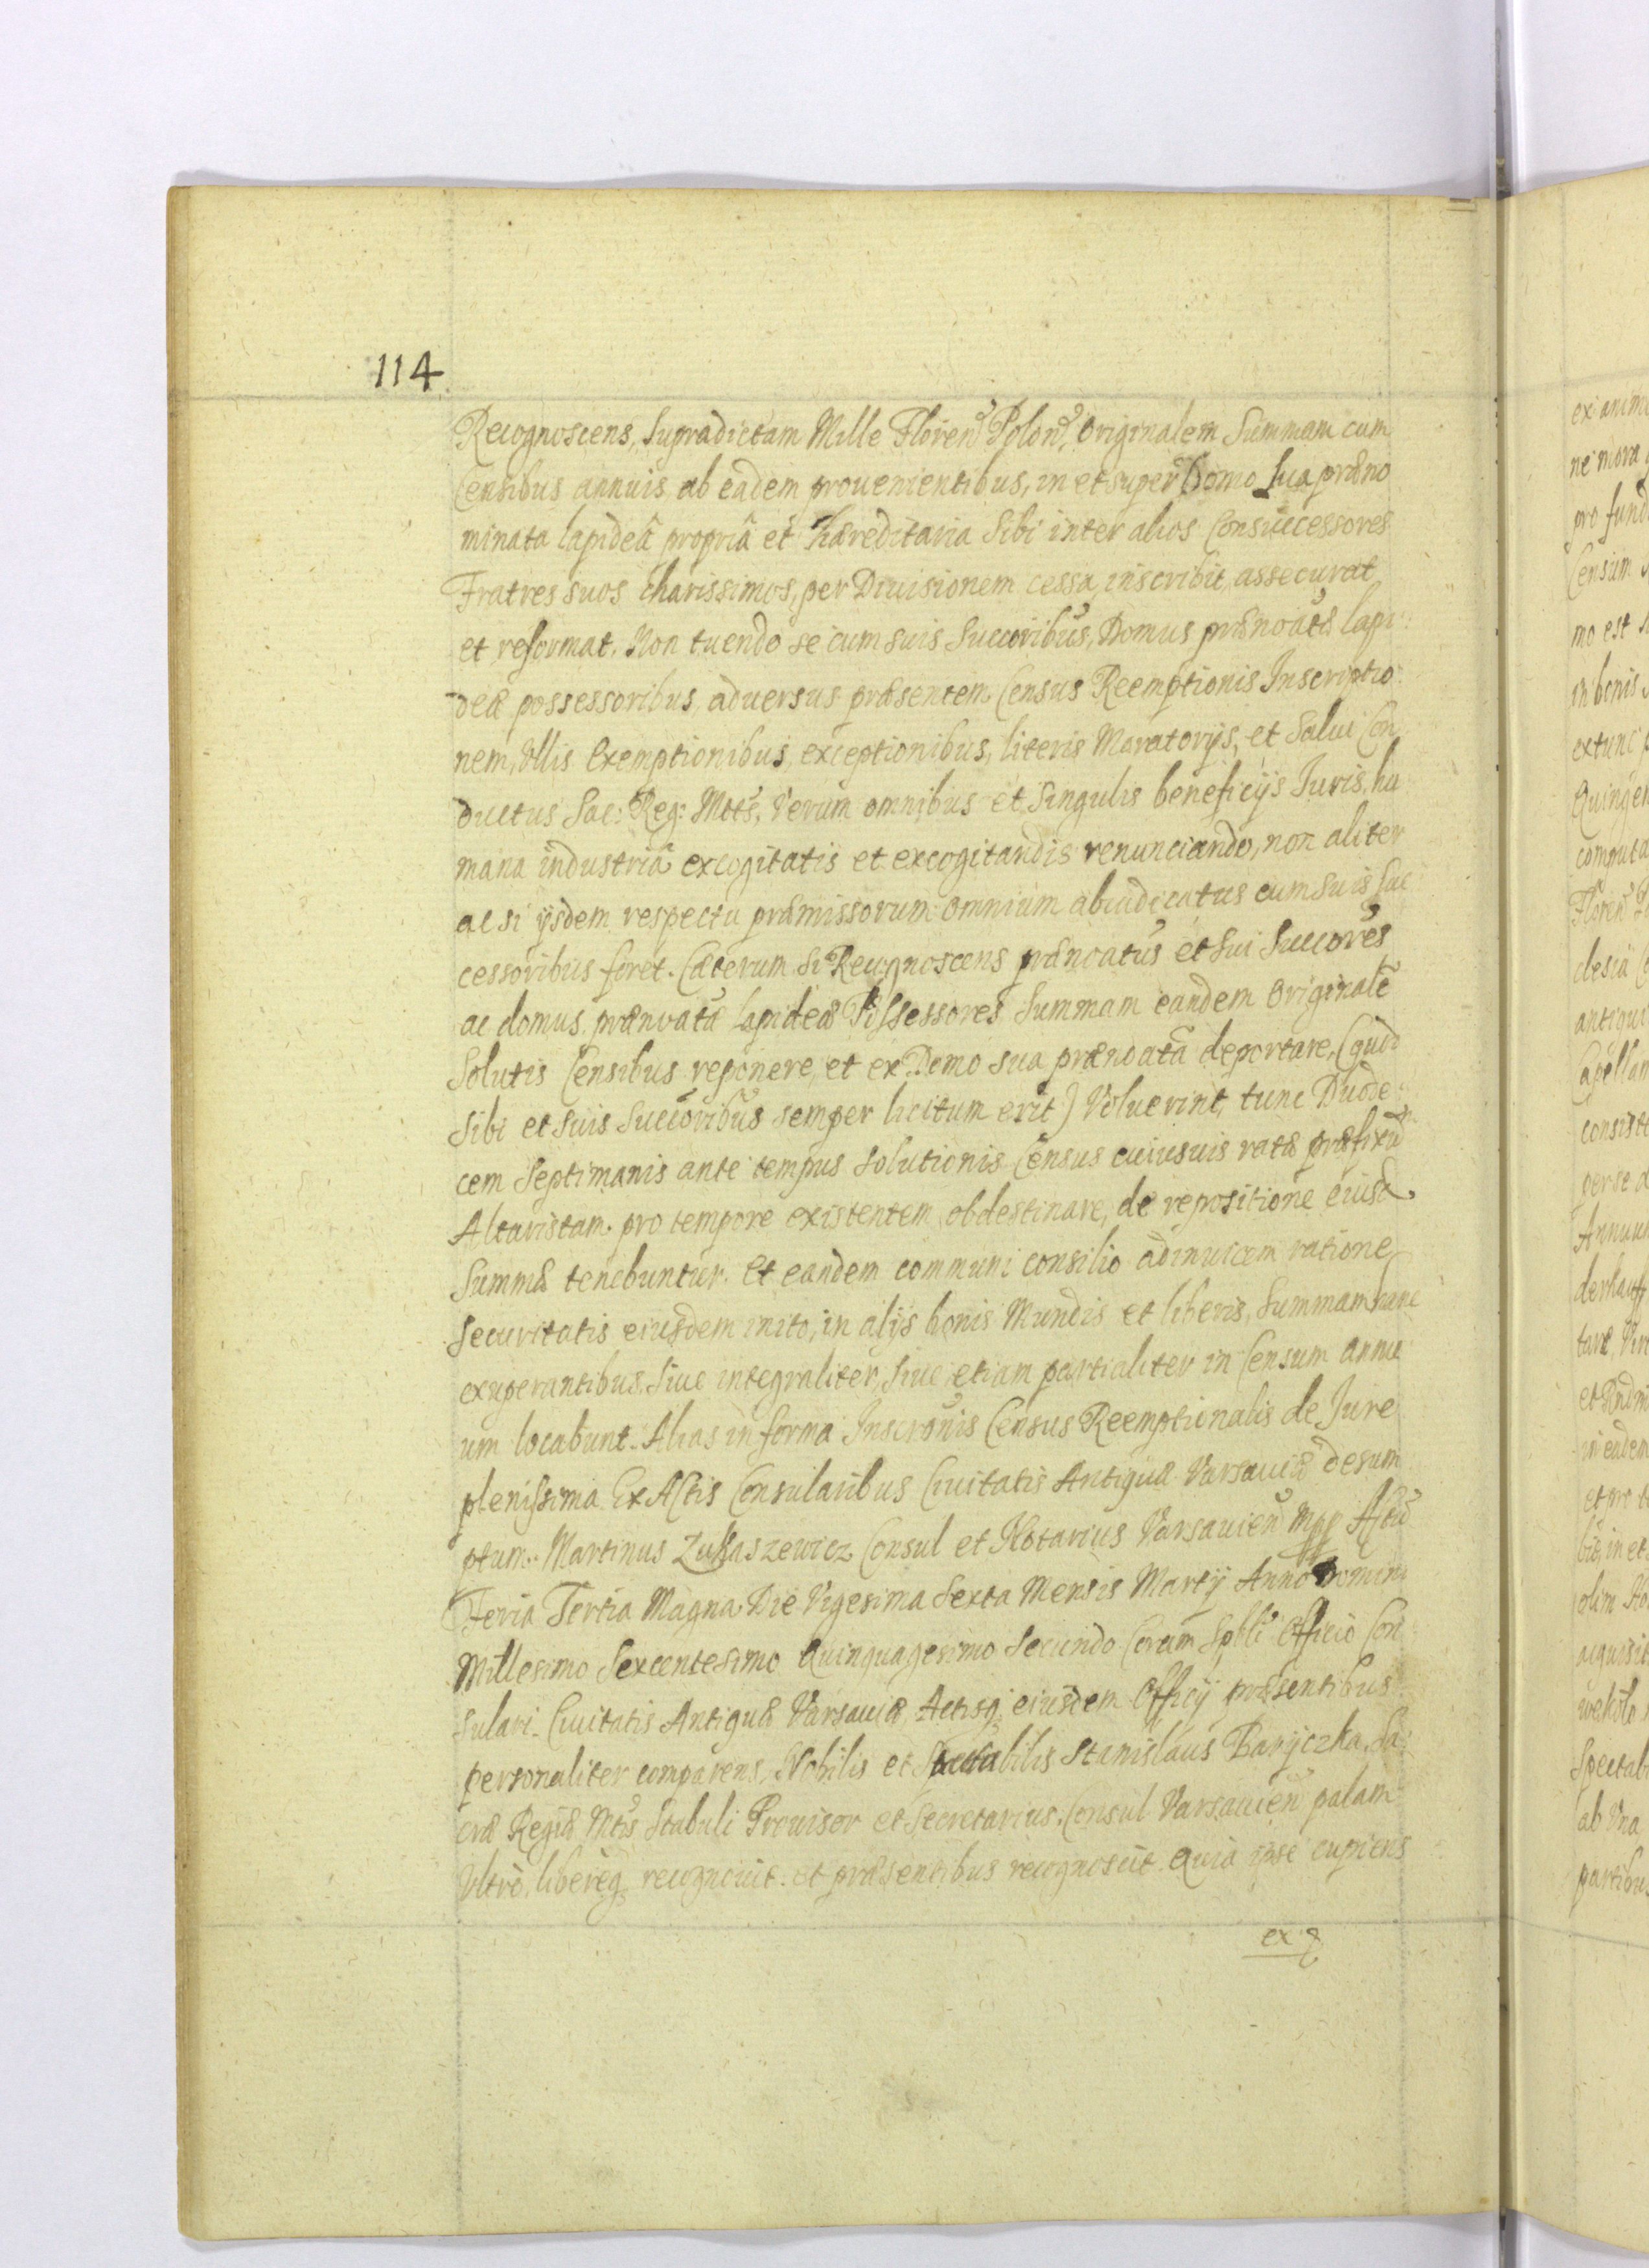 114
Recognoscens, Supradictam Mille Floren Polon, Originalem Summam cum
Censibus annuis ab eadem prouenientibus, in et super Domo Sua præno
minata lapideâ propriâ et hæreditaria Sibi inter alios Consuccessores
Fratres suos charissimos, per Diuisionem cessa, inscribit, assecurat,
et reformat. Non tuendo se cum suis Succoribus, Domus prænoatæ lapi:
deæ possessoribus, aduersus præsentem Census Reemptionis Inscriptio
nem, Vllis Exemptionibus, exceptionibus, literis Moratorijs, et Salui Con
ductus Sac: Reg: Mttis, Verum omnibus et Singulis beneficijs Iuris, hu
mana industriâ excogitatis et excogitandis renunciando, non aliter
ac si ijsdem respectu præmissorum omnium abiudicatus cum suis Suc
cessoribus foret. Cæterum Si Recognoscens prænoatus et Sui Succores
ac domus prænoatæ Lapideæ Possessores Summam eandem Originalē
Solutis Censibus reponere, et ex Domo sua prænoatâ deportare, (quod
Sibi et Suis Succoribus semper licitum erit) Voluerint, tunc Duode
cem Septimanis ante tempus Solutionis Census cuiusuis ratæ præfixū
Altaristam pro tempore existentem, obdestinare, de repositione eiusd.
Summæ tenebuntur. Et eandem communi consilio adinuicem ratione
Securitatis eiusdem inito, in alijs bonis Mundis et liberis, Summam hanc
exuperantibus, Siue integraliter, Siue etiam partialiter in Censum annu
um locabunt. Alias in forma Inscronis Census Reemptionalis de Iure
plenissima Ex Actis Consularibus Ciuitatis Antiquæ Varsauiæ desum
ptum. Martinus Zukaszewicz Consul et Notarius Varsauien mpp Actū
Feria Tertia Magna Die Vigesima Sexta Mensis Martij Anno Domini
Millesimo Sexcentesimo Quinquagesimo Secundo Coram Spbli Officio Con
sulari Ciuitatis Antiquæ Varsauiæ Actisq; eiusdem Officij præsentibus
personaliter comparens, Nobilis et Spectabilis Stanislaus Baryczka, Sa
cræ Regiæ Mttis Stabuli Prouisor et Secretarius, Consul Varsauien palam
Vltrò, libereq; recognouit. et præsentibus recognoscit. Quia ipse cupiens
ex